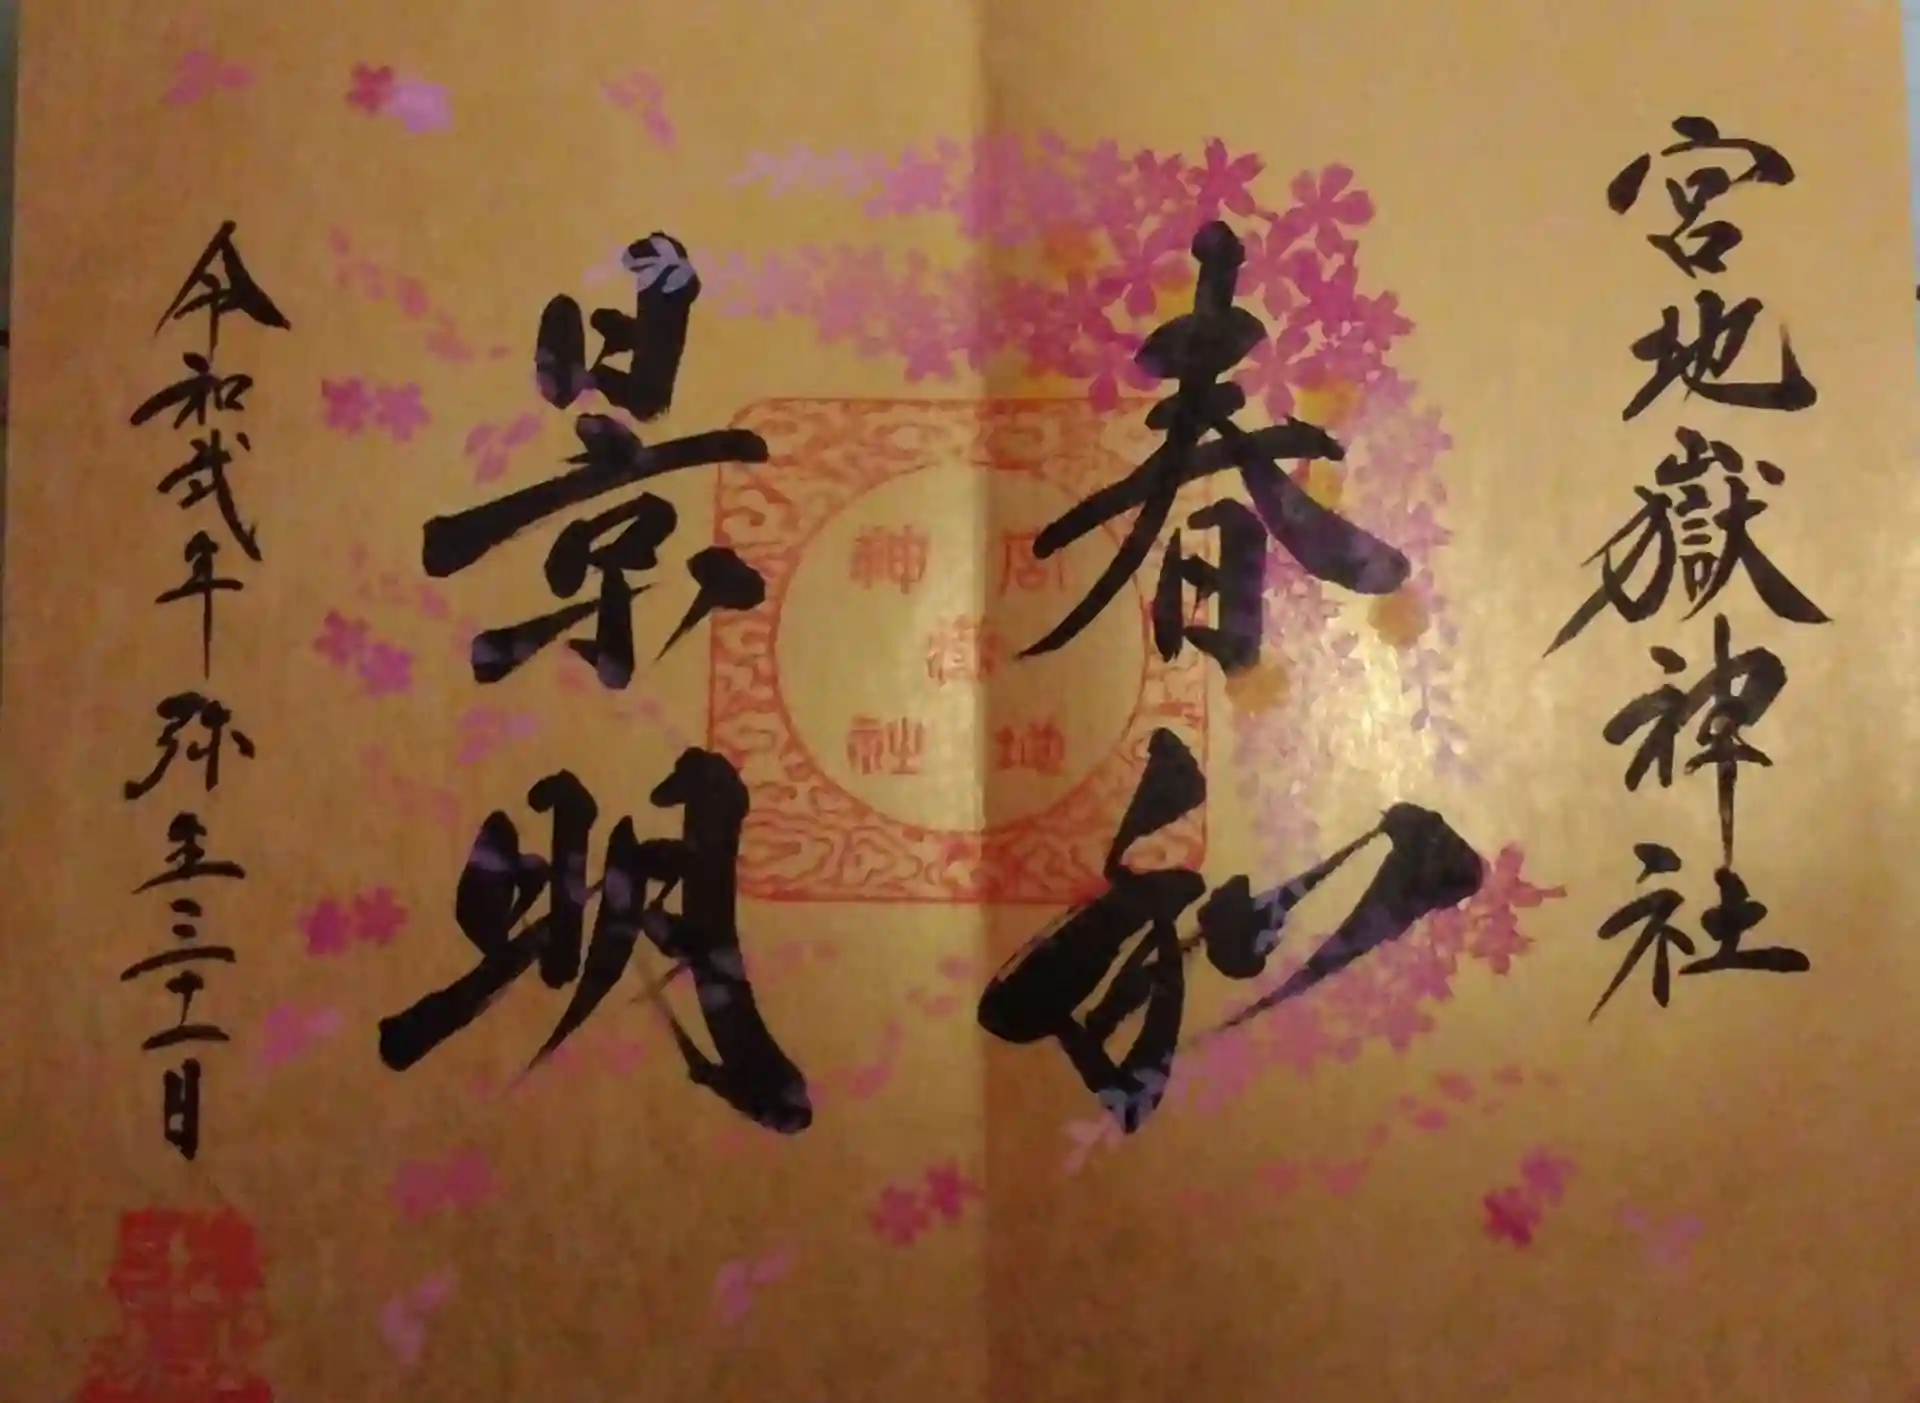 宮地嶽神社
春和
景明
宮地嶽神社
令和弐年弥生三十一日